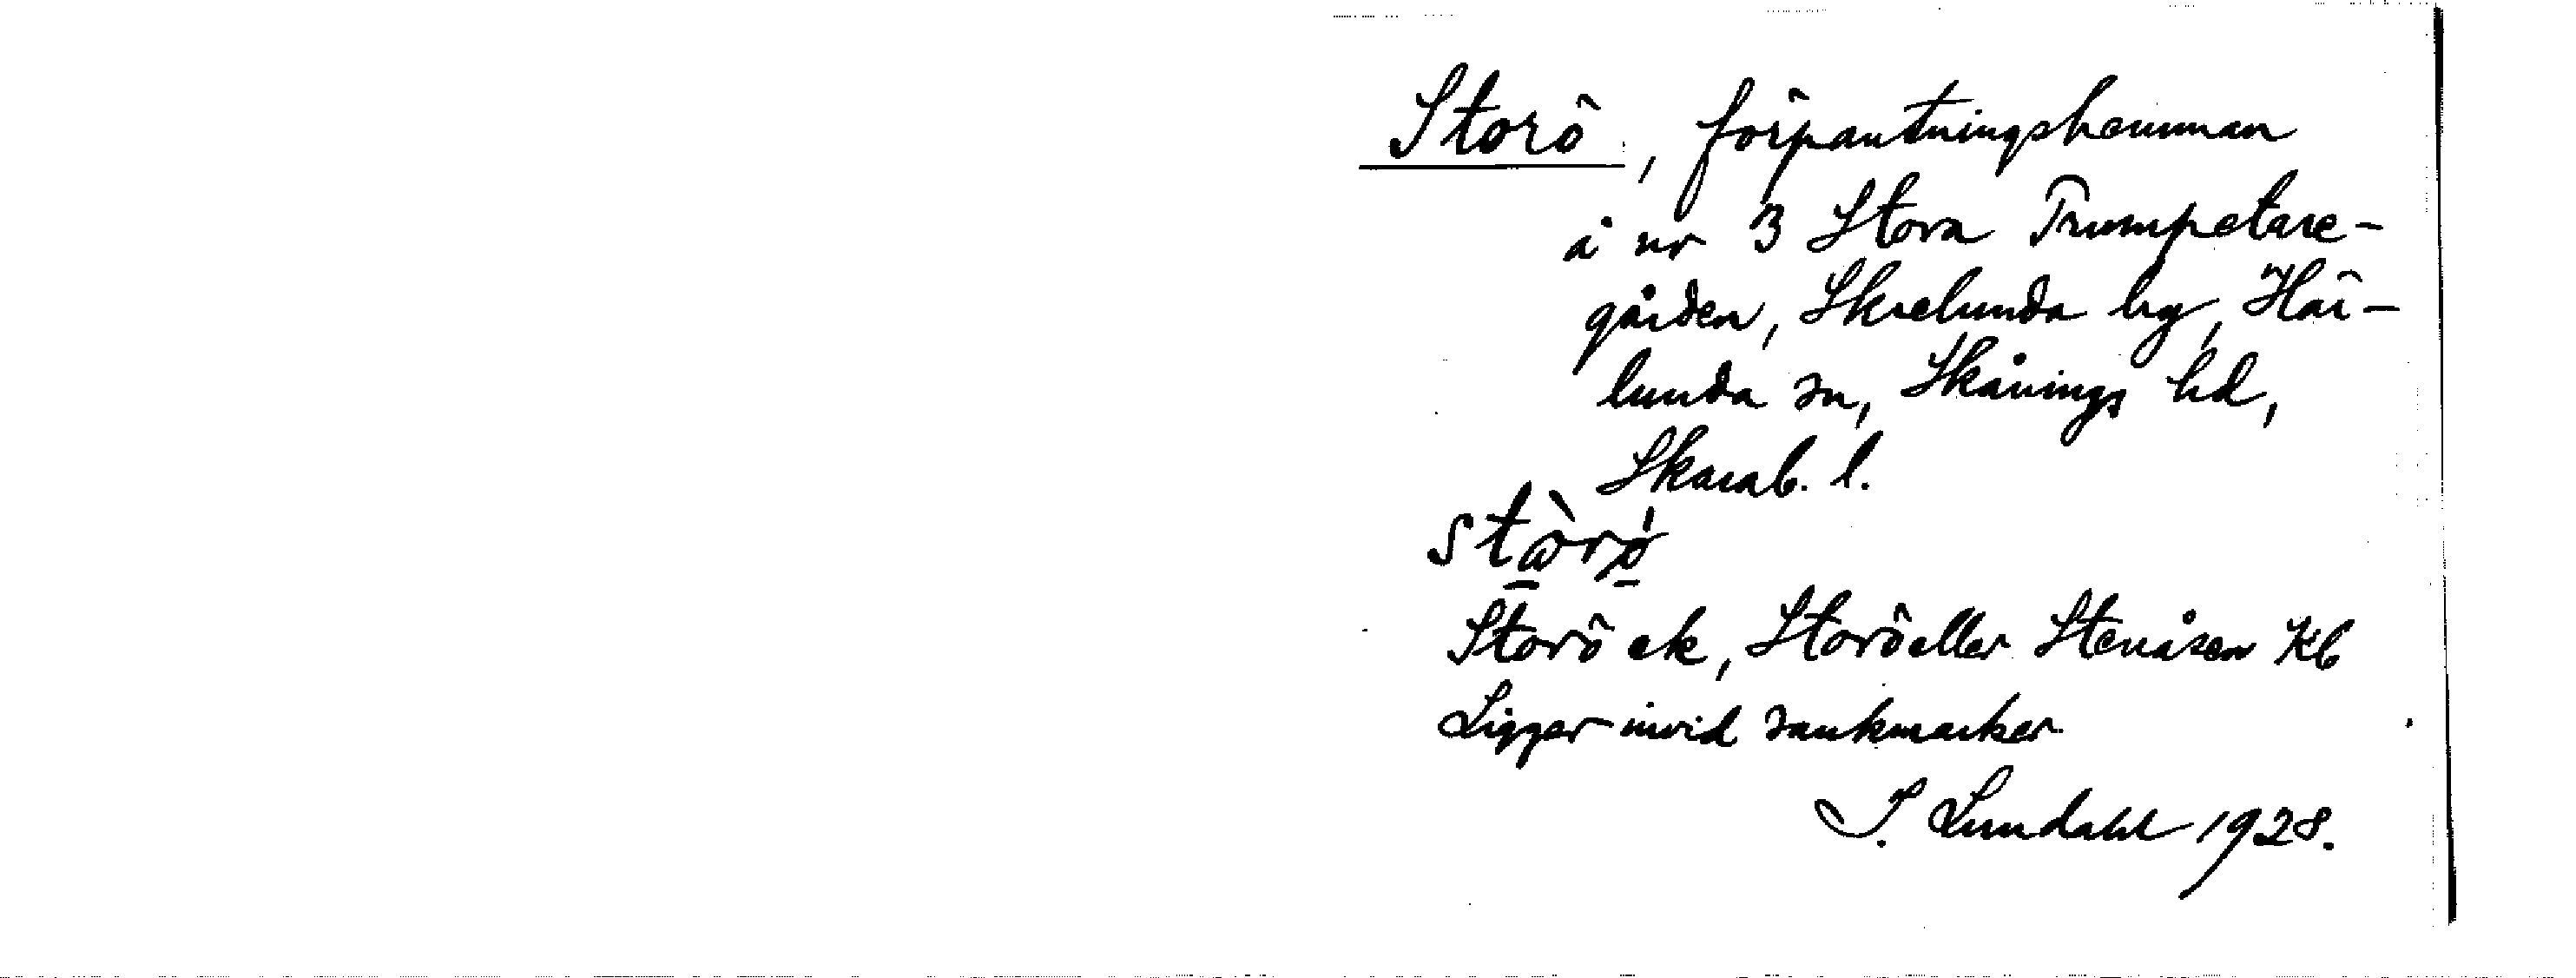 Storö, förpantningshemman
å nr 3 Stora Trumpetare-
gården, Skrelunda by, Här-
lunda sn, Skånings hd,
Skarab. l.
Storö ek, Storö eller Stenåsen Kb
Ligger invid sankmarker
I. Lundahl 1928.